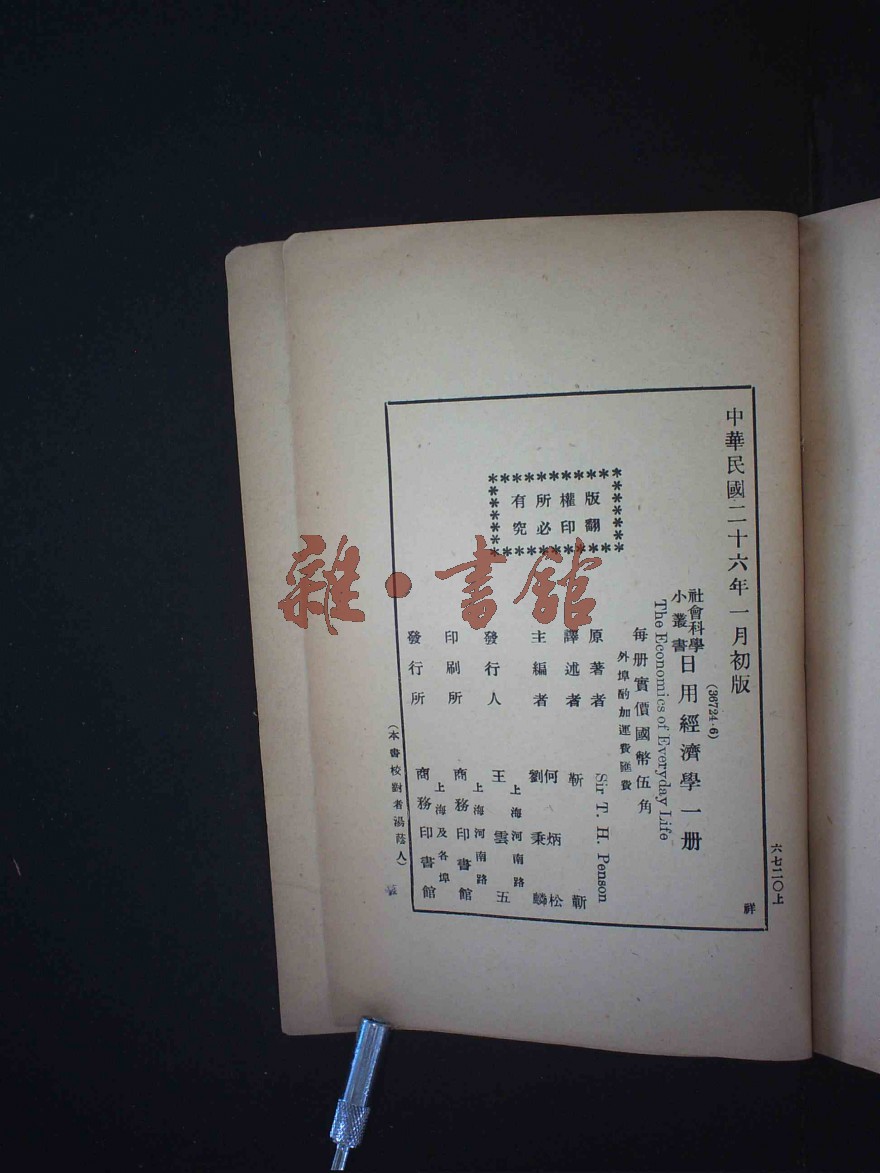 六七二〇上
祥
中華民國二十六年一月初版
(36724·6)
社會科學
小叢書
日用經濟學一册
The Economics of Everyday Life
每册實價國幣伍角
外埠酌加運費匯費
版權所有
翻印必究
原著者 Sir T. H. Penson
譯述者 靳 靳
主編者 何炳松
劉秉麟
發行人 王雲五
上海河南路
印刷所 商務印書館
上海河南路
發行所 商務印書館
上海及各埠
(本書校對者湯蔭人)
雜·書館